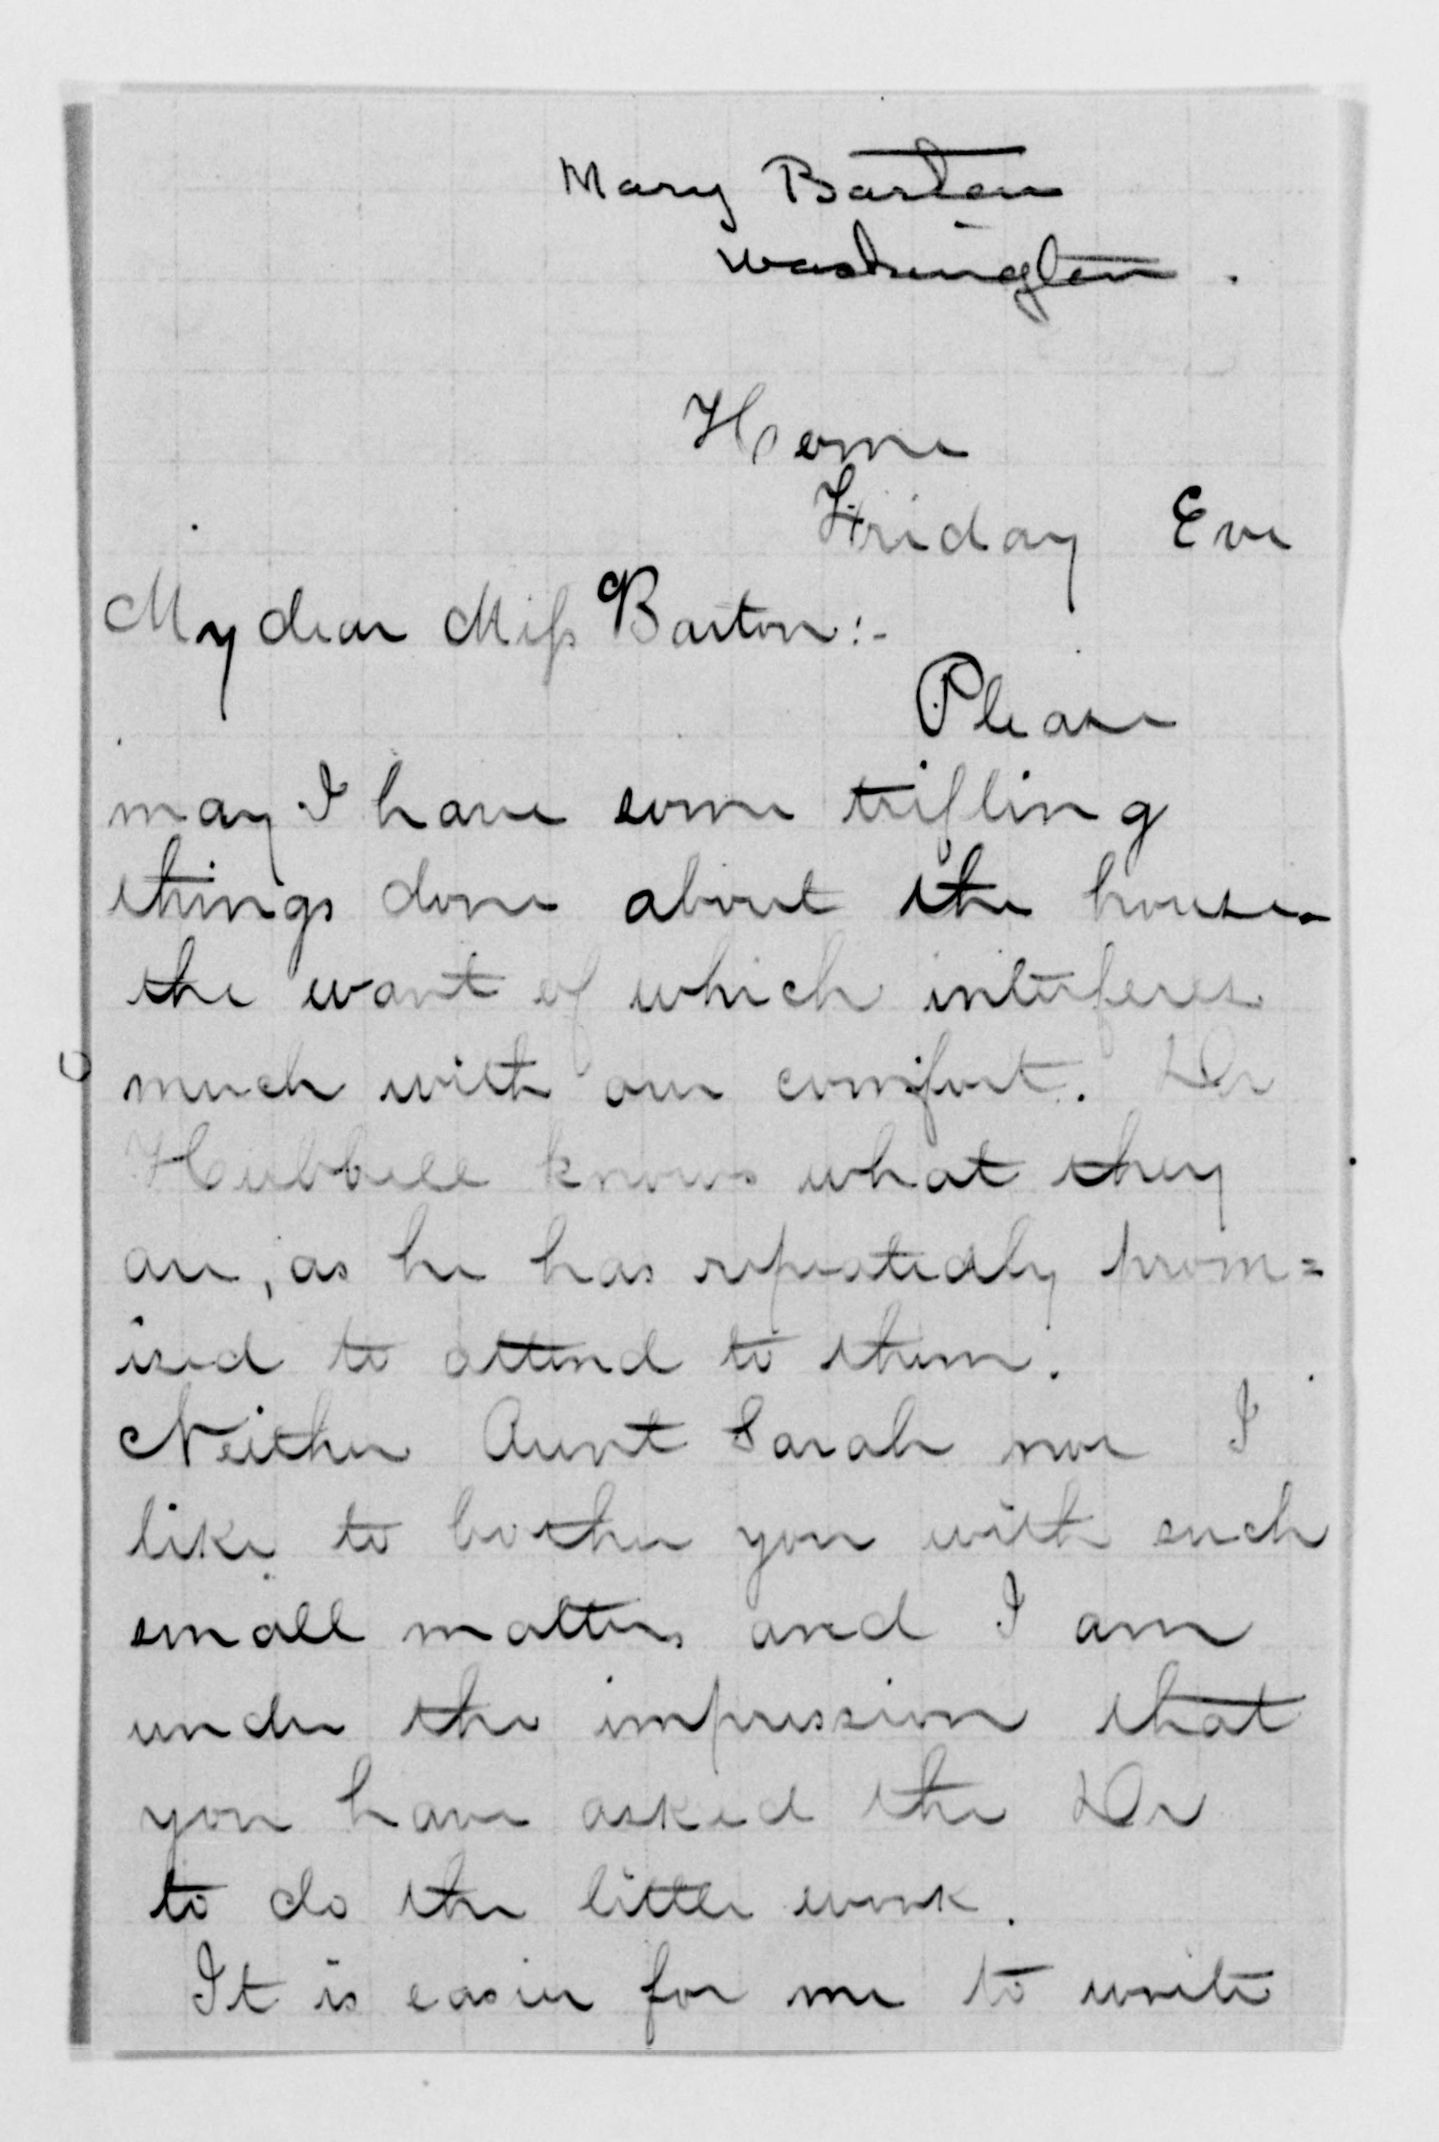 Mary Barton
Washington.
Home
Friday Eve
My dear Miss Barton:-
Please
may I have some trifling
things done about the house
the want of which interferes
much with our comfort. Dr
Hubbell knows what they
are, as he has repeatedly prom=
ised to attend to them.
Neither Aunt Sarah nor I
like to bother you with such
small matters and I am
under the impression that
you have asked the Dr
to do the little work.
It is easier for me to write